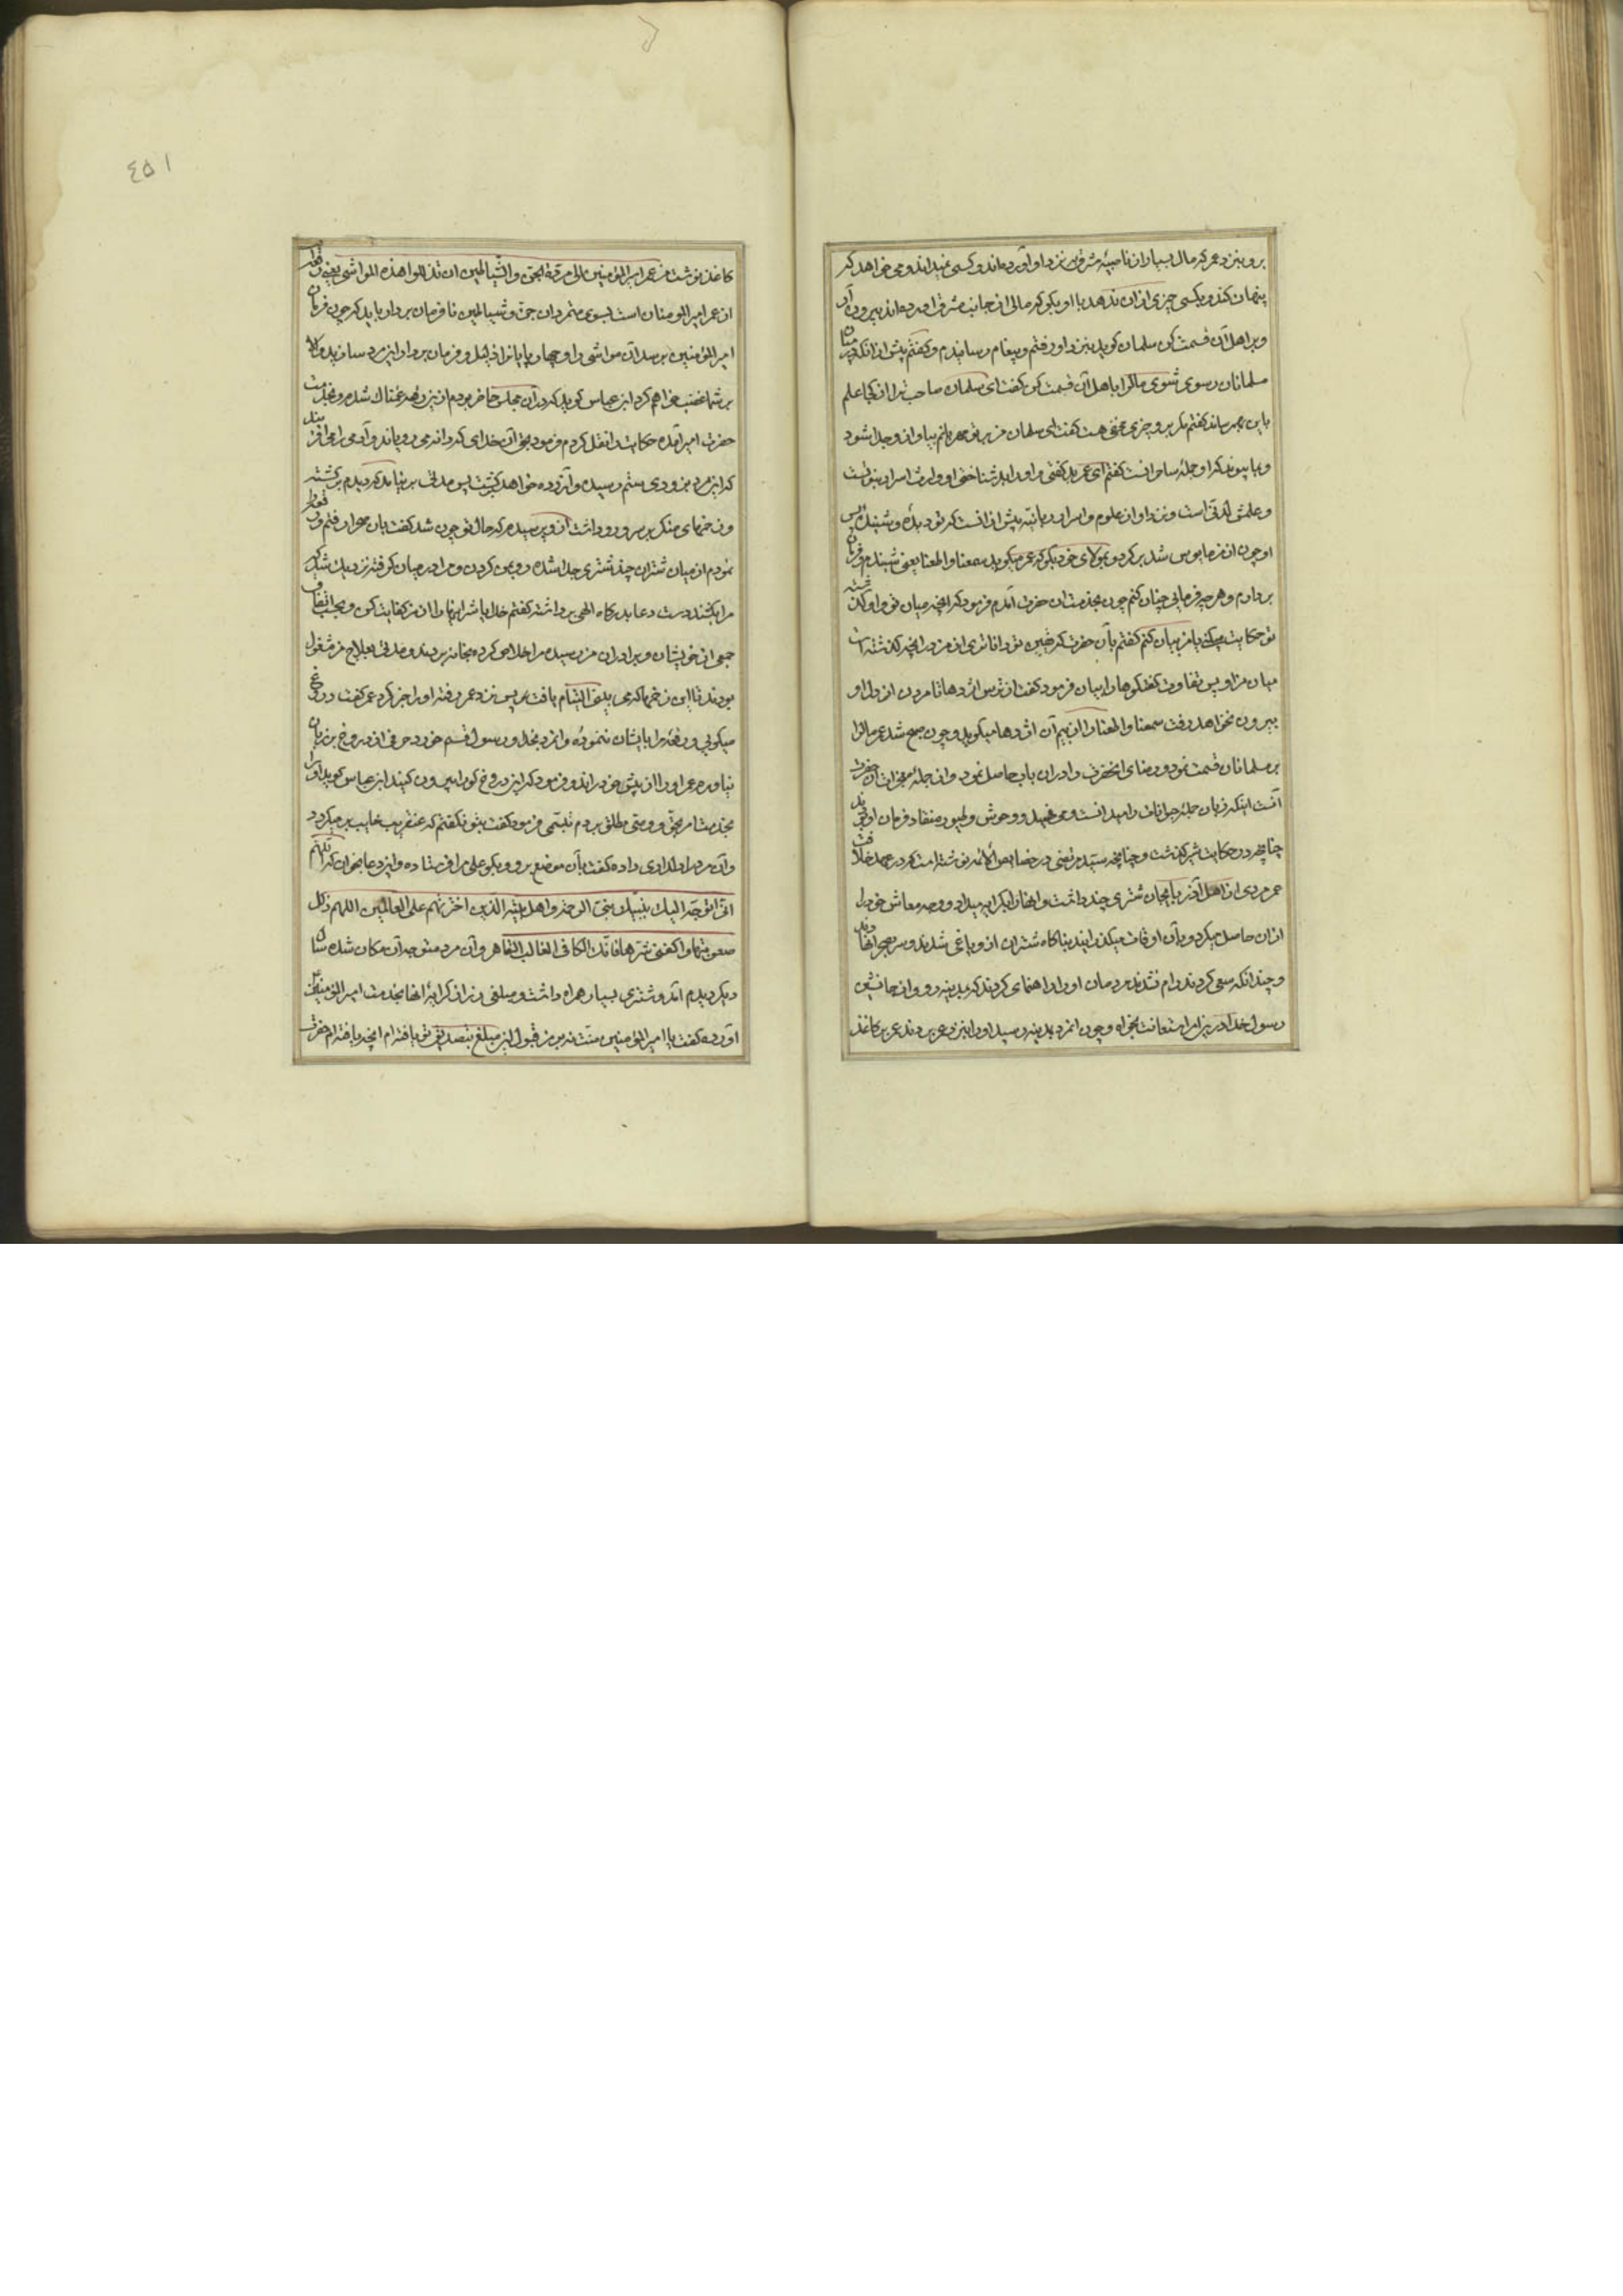 برو بنزد عمر که مال بسیار از ناحیهٔ مشرق نزد او آورده‌اند و کسی نمیداند و می‌خواهد که
پنهان کند و بکسی چیزی از ان ندهد با او بگو که مالی از جانب مشرق آورده‌اند بیرون آر
و بر اهل آن قسمت کن سلمان کوید بنزد او رفتم و پیغام رسانیدم و کفتم پیش از انکه در میان
مسلمانان رسوی شوی مال را باهل آن قسمت کن کفت ای سلمان صاحب ترا از کجا علم
باین بهم رساند کفتم مکر برو چیزی مخفی هست کفت ای سلمان من بر تو مهربانم بیا و از و جدا شو
و بما پیوند که او جملهٔ ساحرانست کفتم ای عمر بد کفتی و او را بد شناختی او وارث اسرار نبوتست
و علمش لدنی است و نزد او از علوم و اسرار ربانیه بیش از انست که تو دیدهٔ و شنیدهٔ پس
او چون از من مایوس شد برکرد و بمولای خود بکو که عمر میکوید سمعنا و اطعنا یعنی شنیدم و فرمان
بردارم و هر چه فرمایی چنان کنم چون بخدمت ان حضرت آمدم فرمود که انچه میان تو و او کذشته
تو حکایت میکنی یا من بیان کنم کفتم یا حضرت که خبیر تو داناتری از من در انچه کذشته است
میان من و او پس تفاوت کفتکوها را بیان فرمود کفت از ترس اژدها تا مردن از دل او
بیرون نخواهد رفت سمعنا و اطعنا از بیم آن اژدها میکوید و چون صبح شد عمر مال را
بر مسلمانان قسمت نمود و رضای انحضرت را در ان باب حاصل نمود و از جملهٔ معجزات آن حضرت
آنست اینکه زبان جملهٔ حیوانات را میدانست و می‌فهمید و وحوش و طیور منقاد فرمان او بودند
چنانچه در حکایت شیر کذشت و چنانچه سید مرتضی در خصایص الائمه نوشته است که در عهد خلافت
عمر مردی از اهل آذربایجان شتری چند داشت و انها را بکرایه میداد و وجه معاش خود را
از ان حاصل میکرد و بآن اوقات میکذرانید بناکاه شتران از و یاغی شدند و سر بصحرا نهادند
و چندانکه سعی کردند رام نشدند مردمان او را راهنمای کردند که بمدینه رو و از جانشین
رسول خدا در این امر استعانت بخواه و چون انمرد بمدینه رسید او را بنزد عمر بردند عمر بر کاغذ
٤٥١
کاغذ نوشت من عمر امیر المؤمنین الی مردة الجن و الشیاطین ان تذللوا هذه المواشی یعنی
از عمر امیر المومنان است بسوی متمردان جن و شیاطین نافرمان بردار باید که چون فرمان
امیر المؤمنین برسد آن مواشی را و چهارپایان را ذلیل و فرمان بردار این مرد سازید و الا
بر شما غضب خواهم کرد ابن عباس کوید که در آن مجلس حاضر بودم از ین رقعه غمناک شدم و بخدمت
حضرت امیر آمده حکایت را نقل کردم فرمود بحق آن خدای که دانه می‌رویاند و آدمی را می‌افریند
که این مرد بزودی ستم رسیده و آزرده خواهد کشت پس مدتی بر نیامد که دیدم برکشته
و زخمهای منکر بر سر و رو داشت ازو پرسیدم که حال تو چون شد کفت بان صحرا رفتم و
نمودم از میان شتران چند شتری جدا شده رو بمن کردند و مرا در میان کرفته نزدیک شد که
مرا بکشند دست دعا بدرکاه الهی برداشته کفتم خدایا شر اینها را از من کفایت کن
جمعی از خویشان و برادران من رسیده مرا خلاص کرده بخانه بردند و مدتی بعلاج من مشغول
بودند تا این زخمها که می بینی التیام یافت پس نزد عمر رفته او را خبر کرد عمر کفت دروغ
میکویی و رقعهٔ مرا بایشان ننمودهٔ و انمرد بخدا و رسول قسم خورد حرفی از دروغ بر زبان
نیاورده عمر او را از پیش خود راند و فرمود که این دروغ کو را بیرون کنید ابن عباس کوید او را
بخدمت امام بحق و وصی مطلق بردم تبسمی فرمود کفت بتو نکفتم که عنقریب خایب برمیکردد
و آن مرد را دلداری داده کفت بآن موضع برو و بکو علی مرا فرستاده و این دعا بخوان که اللهم
انی اتوجه الیک بنبیک نبی الرحمة و اهل بیته الذین اخترتهم علی العالمین اللهم ذلل
صعوبتها و اکفنی شرها فانک الکافی الغالب القاهر و آن مرد متوجه آن مکان شده سال
دیکر دیدم آمد و شتری بسیار همراه داشت و مبلغی زر از کرایهٔ انها بخدمت امیر المؤمنین
آورده کفت یا امیر المؤمنین منت نه بر من قبول این مبلغ بتصدق تو یافته‌ام انچه یافته‌ام حضرت